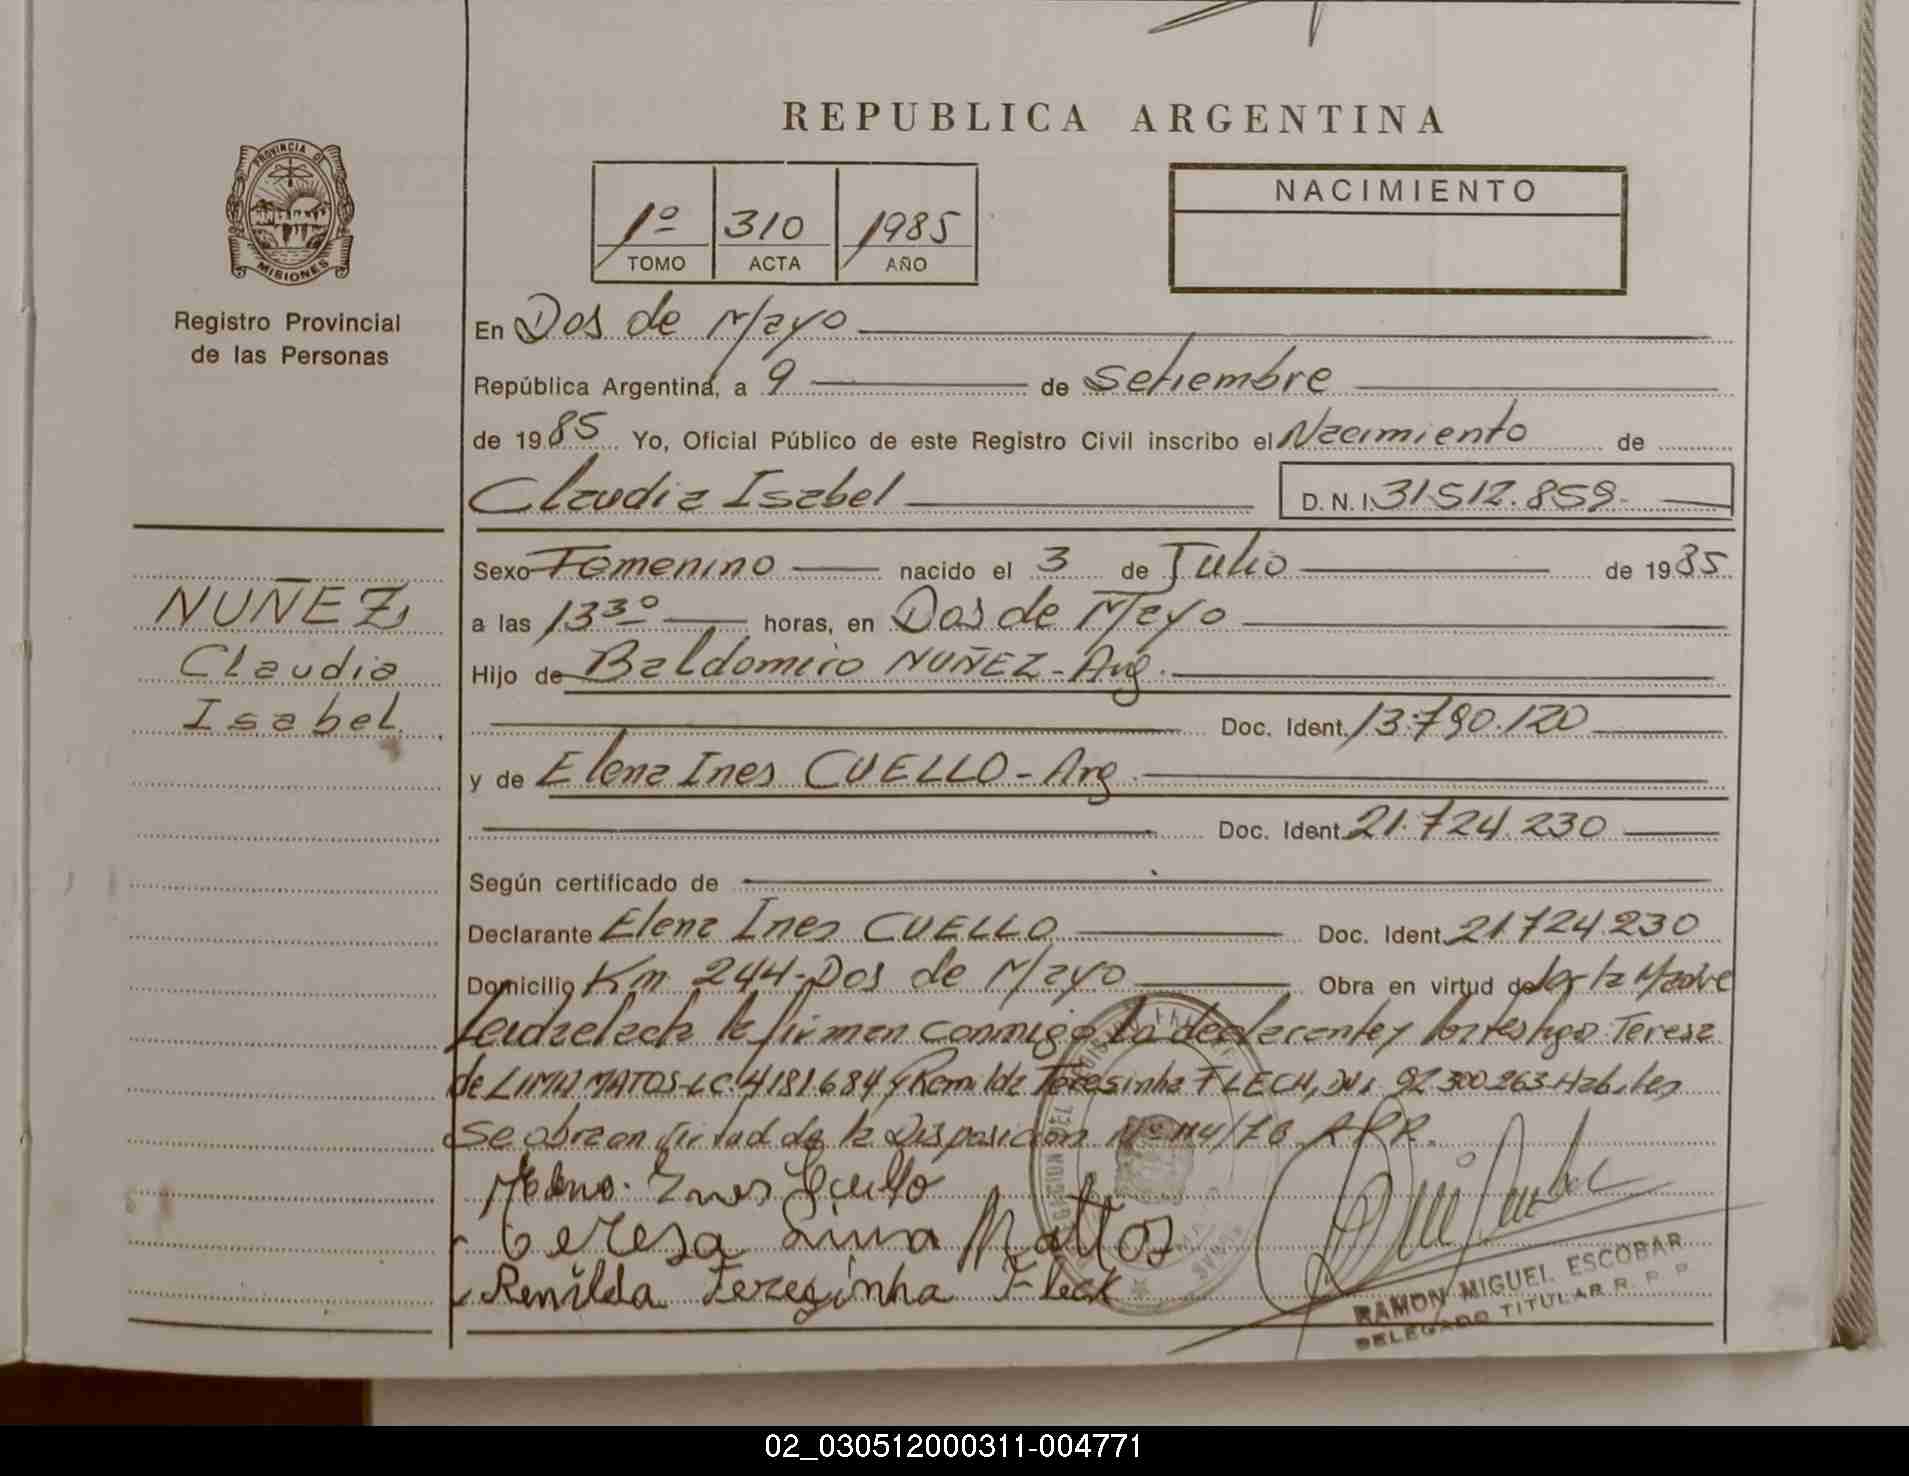 REPUBLICA ARGENTINA
PROVINCIA DE
MISIONES
Registro Provincial
de las Personas
1º 310 1985
TOMO ACTA AÑO
NACIMIENTO
En Dos de Mayo
República Argentina, a 9 de Setiembre
de 1985 Yo, Oficial Público de este Registro Civil inscribo el Nacimiento de
Claudia Isabel D. N. I. 31.512.859.
NUÑEZ,
Claudia
Isabel
Sexo Femenino nacido el 3 de Julio de 1985
a las 13 30 horas, en Dos de Mayo
Hijo de Baldomiro NUÑEZ - Arg.
Doc. Ident. 13.790.120
y de Elena Ines CUELLO - Arg.
Doc. Ident. 21.724.230
Según certificado de
Declarante Elena Ines CUELLO Doc. Ident. 21.724.230
Domicilio Km 244 - Dos de Mayo Obra en virtud de ser la Madre
Leida el acta la firman conmigo la declarante y los testigos: Teresa
de LIMA MATOS - LC. 4181.684 y Renilda Teresinha FLECH, DNI 92.300.263 Habiles
Se obra en virtud de la Disposicion Nº 114/78
Elena Ines Cuello
Teresa Lima Mattos
Renilda Terezinha Fleck
RAMON MIGUEL ESCOBAR
DELEGADO TITULAR R. P. P.
02_030512000311-004771